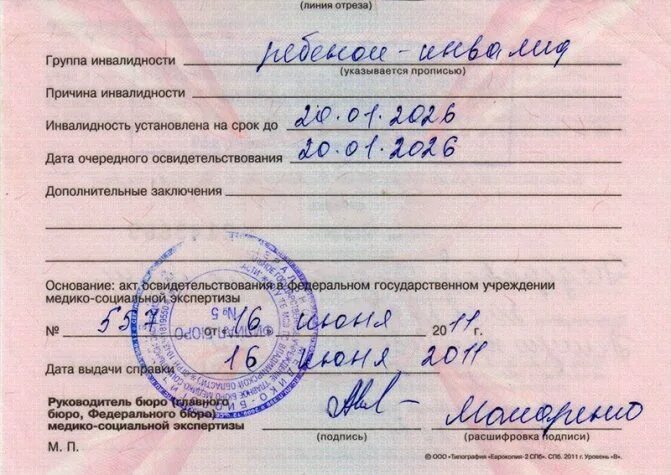 (линия отреза)
Группа инвалидности ребенок-инвалид
(указывается прописью)
Причина инвалидности
Инвалидность установлена на срок до 20.01.2026
Дата очередного освидетельствования 20.01.2026
Дополнительные заключения
Основание: акт освидетельствования в федеральном государственном учреждении
медико-социальной экспертизы
№ 557 от 16 июня 2011 г.
Дата выдачи справки 16 июня 2011
Руководитель бюро (главного
бюро, Федерального бюро)
медико-социальной экспертизы
(подпись) (расшифровка подписи)
М. П.
© ООО «Типография «Еврокопия-2 СПб». СПб. 2011 г. Уровень «В».
ФИЛИАЛ-БЮРО
№ 5